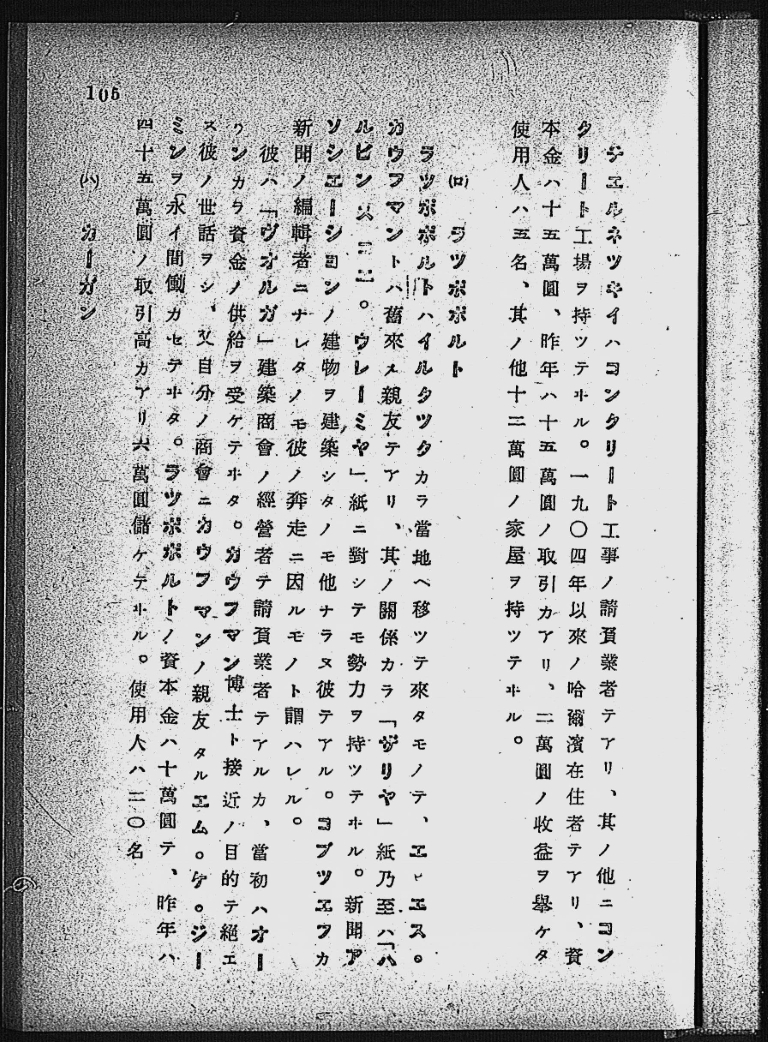 105
チエルネツキイハコンクリート工事ノ請負業者テアリ、其ノ他ニコン
クリート工場ヲ持ツテヰル。一九〇四年以來ノ哈爾濱在住者テアリ、資
本金ハ十五萬圓、昨年ハ十五萬圓ノ取引カアリ、二萬圓ノ收益ヲ擧ケタ
使用人ハ五名、其ノ他十二萬圓ノ家屋ヲ持ツテヰル。
(ロ) ラツポポルト
ラツポポルトハイルクツクカラ當地ヘ移ツテ來タモノテ、エ・エス。
カウフマントハ舊來ノ親友テアリ、其ノ關係カラ「ザリヤ」紙乃至ハ「ハ
ルビンスコエ。ウレーミヤ」紙ニ對シテモ勢力ヲ持ツテヰル。新聞ア
ソシエーションノ建物ヲ建築シタノモ他ナラヌ彼テアル。コブツエフカ
新聞ノ編輯者ニナレタノモ彼ノ奔走ニ因ルモノト謂ハレル。
彼ハ「ヴオルガ」建築商會ノ經營者テ請負業者テアルカ、當初ハオー
ウンカラ資金ノ供給ヲ受ケテヰタ。カウフマン博士ト接近ノ目的テ絕エ
ス彼ノ世話ヲシ、又自分ノ商會ニカウフマンノ親友タルエム。ゲ。ジー
ミンヲ永イ間働カセテヰタ。ラツポポルトノ資本金ハ十萬圓テ、昨年ハ
四十五萬圓ノ取引高カアリ六萬圓儲ケテヰル。使用人ハ二〇名
(ハ) カーガン